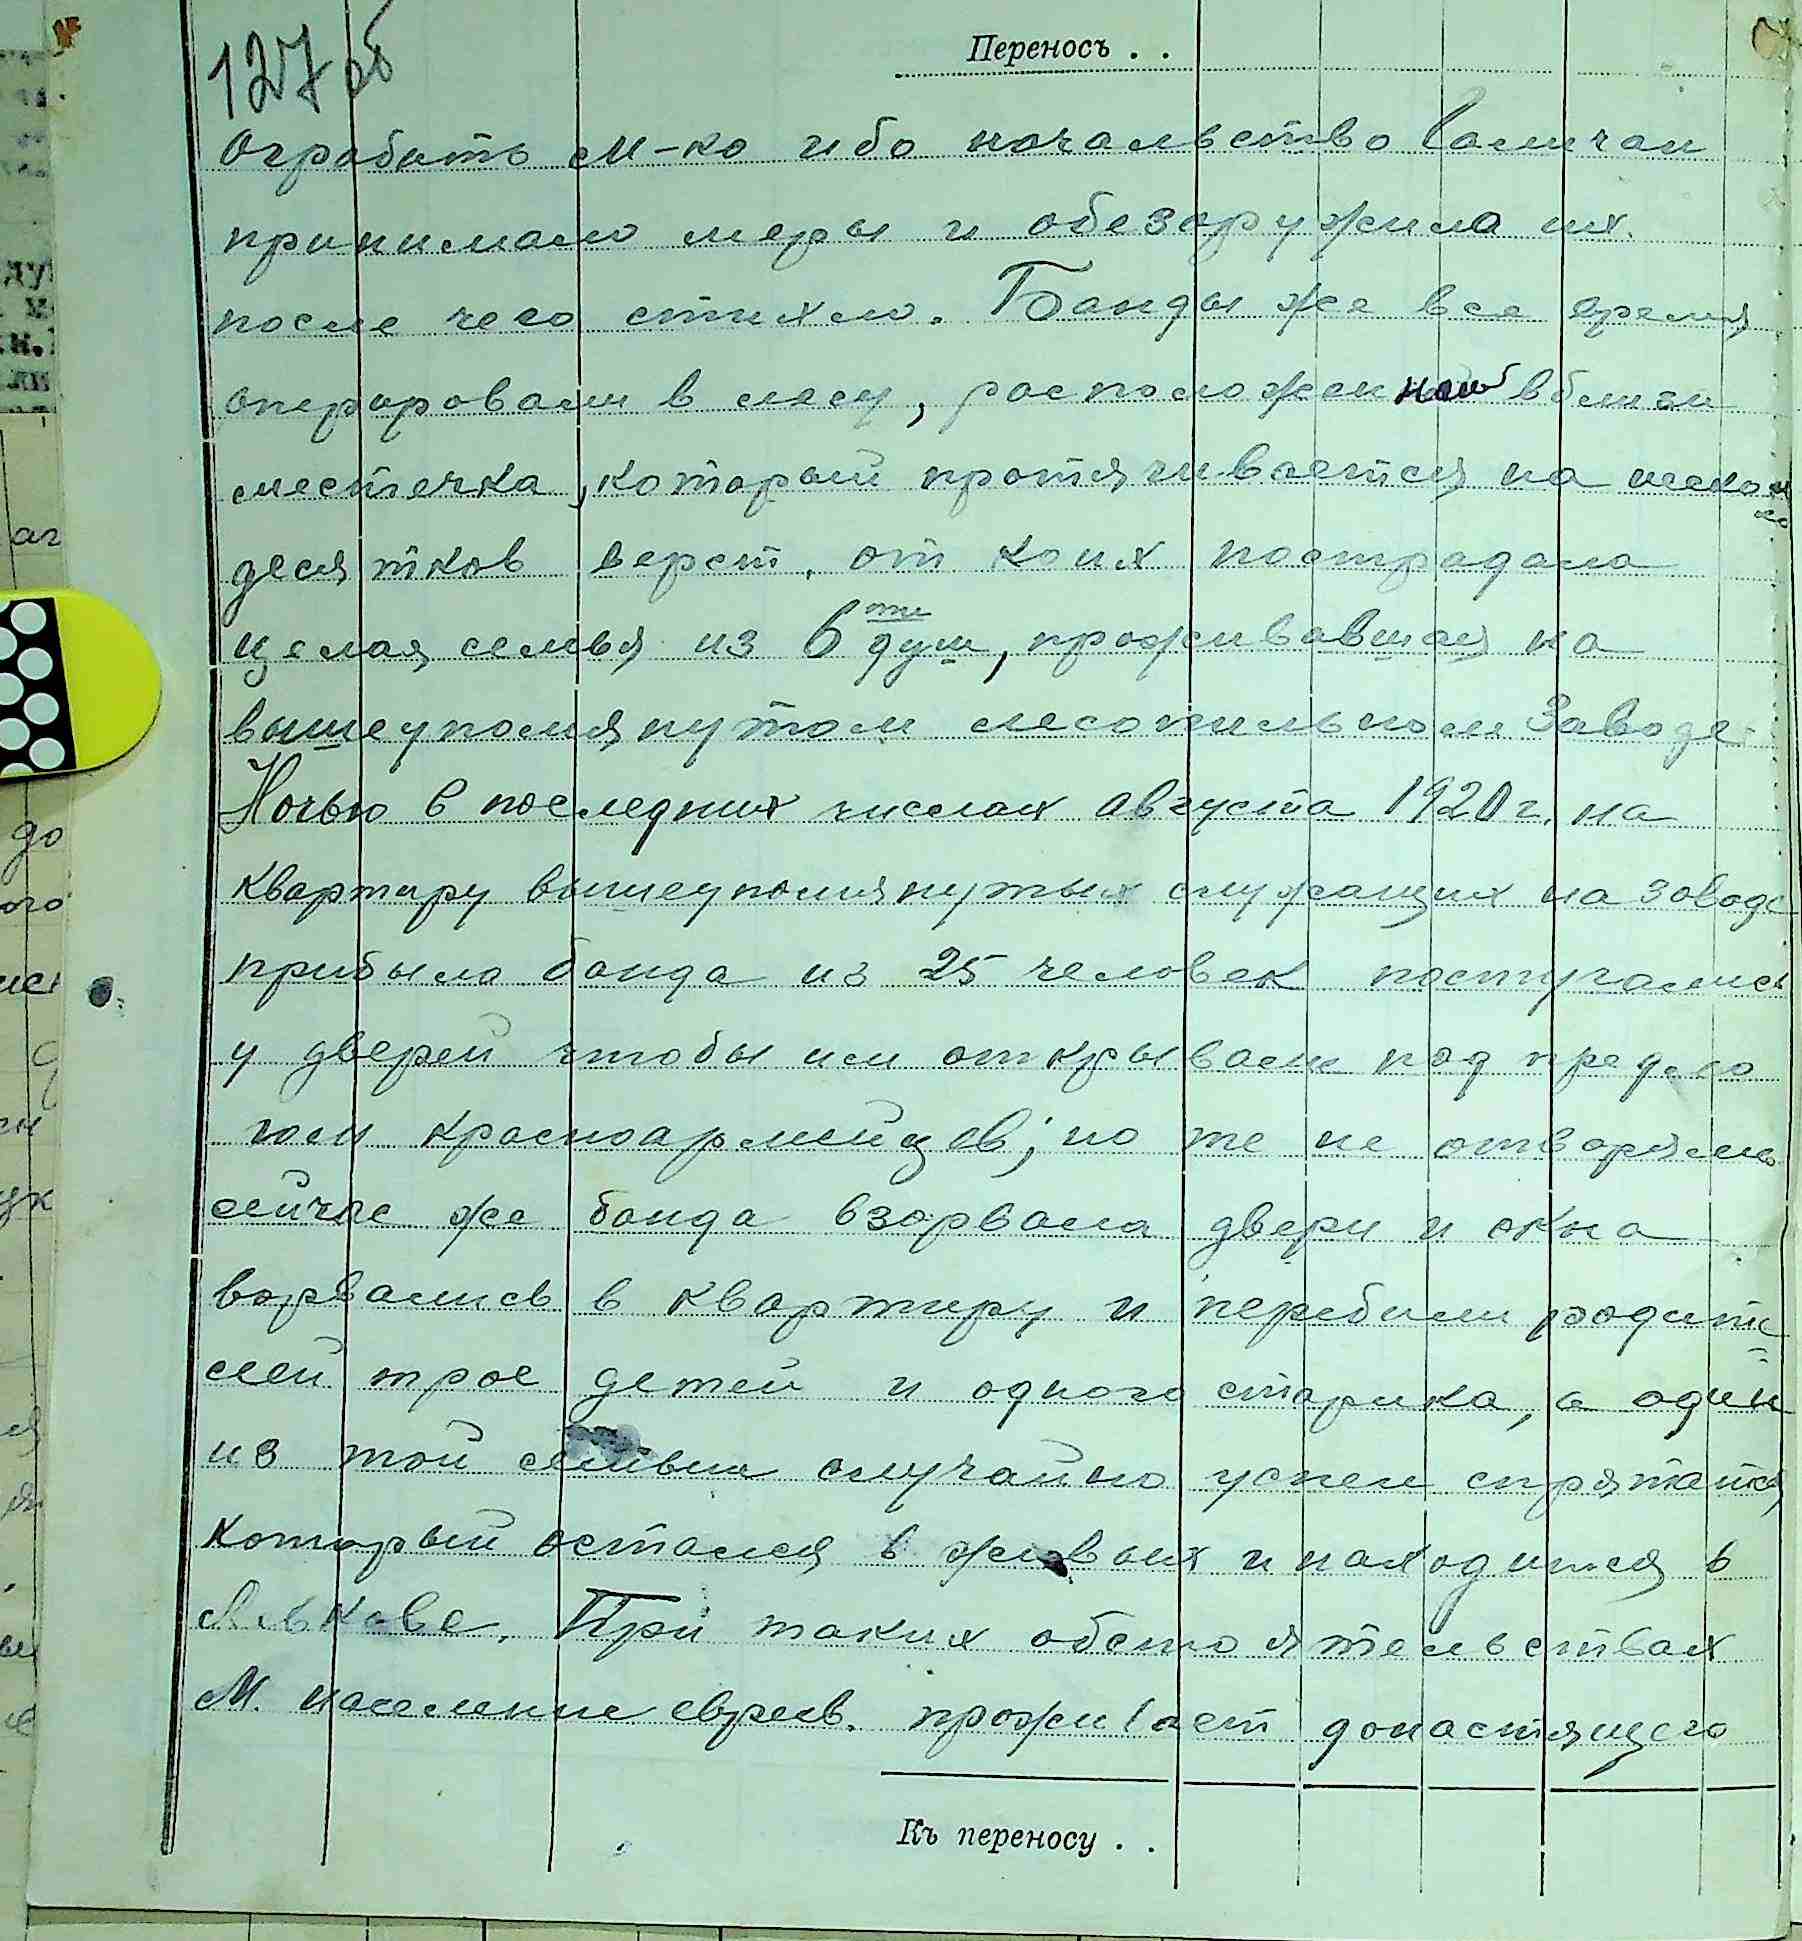 127 об
Переносъ . .
ограбить м-ко ибо начальство
принимало меры и обезоружила их.
после чего стихло. Банды же все время
оперировали в лесу, расположенной вблизи
местечка, который протягивается на несколь
ко
десятков верст. от коих пострадала
целая семья из 6ти душ, проживавшая на
вышеупомянутом лесопильном заводе.
Ночью в последних числах августа 1920 г. на
квартиру вышеупомянутых служащих на заводе
прибыла банда из 25 человек постучались
у дверей чтобы им открывали под предло
гом красноармейцев; но те не отворяли
сейчас же банда взорвала двери и окна
ворвались в квартиру и перебили родите
лей трое детей и одного старика, а один
из той семьи случайно успел спрятаться
который остался в живых и находится в
При таких обстоятельствах
М. население евреев. проживает донастящего
Къ переносу . .